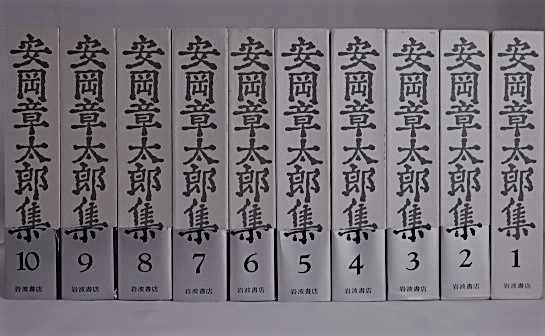 安岡章太郎集
10
岩波書店
安岡章太郎集
9
岩波書店
安岡章太郎集
8
岩波書店
安岡章太郎集
7
岩波書店
安岡章太郎集
6
岩波書店
安岡章太郎集
5
岩波書店
安岡章太郎集
4
岩波書店
安岡章太郎集
3
岩波書店
安岡章太郎集
2
岩波書店
安岡章太郎集
1
岩波書店